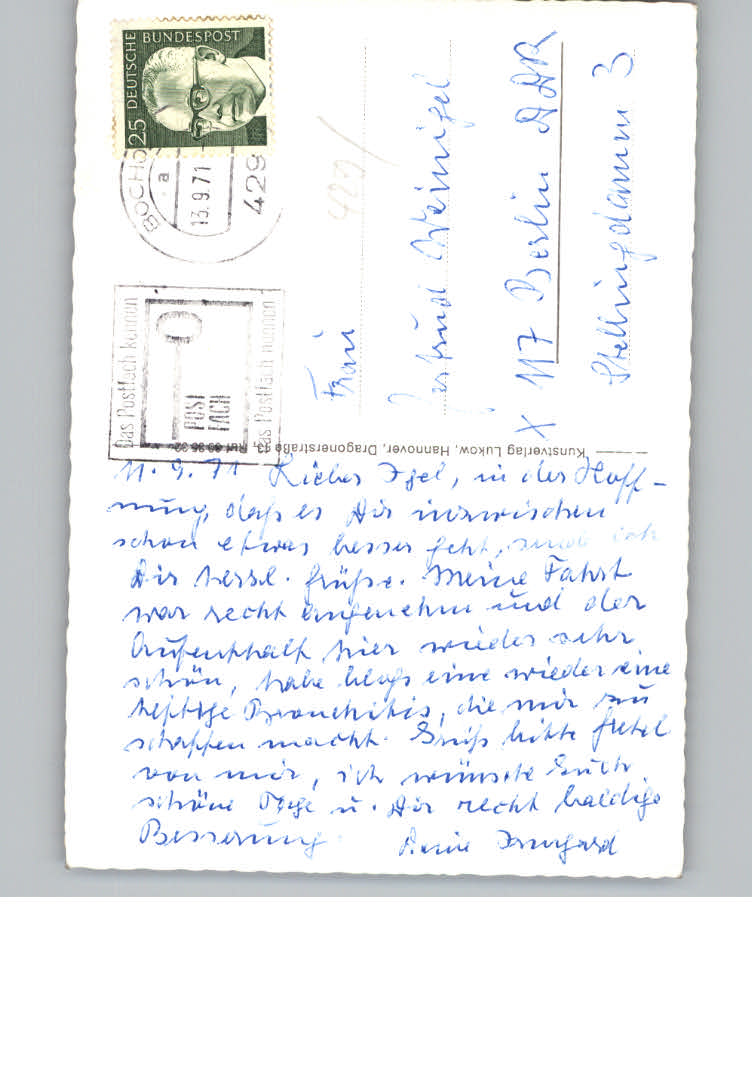 25 DEUTSCHE BUNDESPOST
BOCHO
a
13.9.71
429
Das Postfach kennen
POST
FACH
das Postfach nennen
429/
Frau
Gertrud Weinigel
X 117 Berlin DDR
Stellingdamm 3
Kunstverlag Lukow, Hannover, Dragonerstraße 13, Ruf
11.9.71 Lieber Igel, in der Hoff-
nung, daß es Dir inzwischen
schon etwas besser geht, send ich
Dir herzl. Grüße. Meine Fahrt
war recht angenehm und der
Aufenthalt hier wieder sehr
schön, habe bloß eine wieder eine
heftige Bronchitis, die mir zu
schaffen macht. Grüß bitte
von mir, ich wünsche Euch
schöne Tage u. Dir recht baldige
Besserung. Deine Irmgard